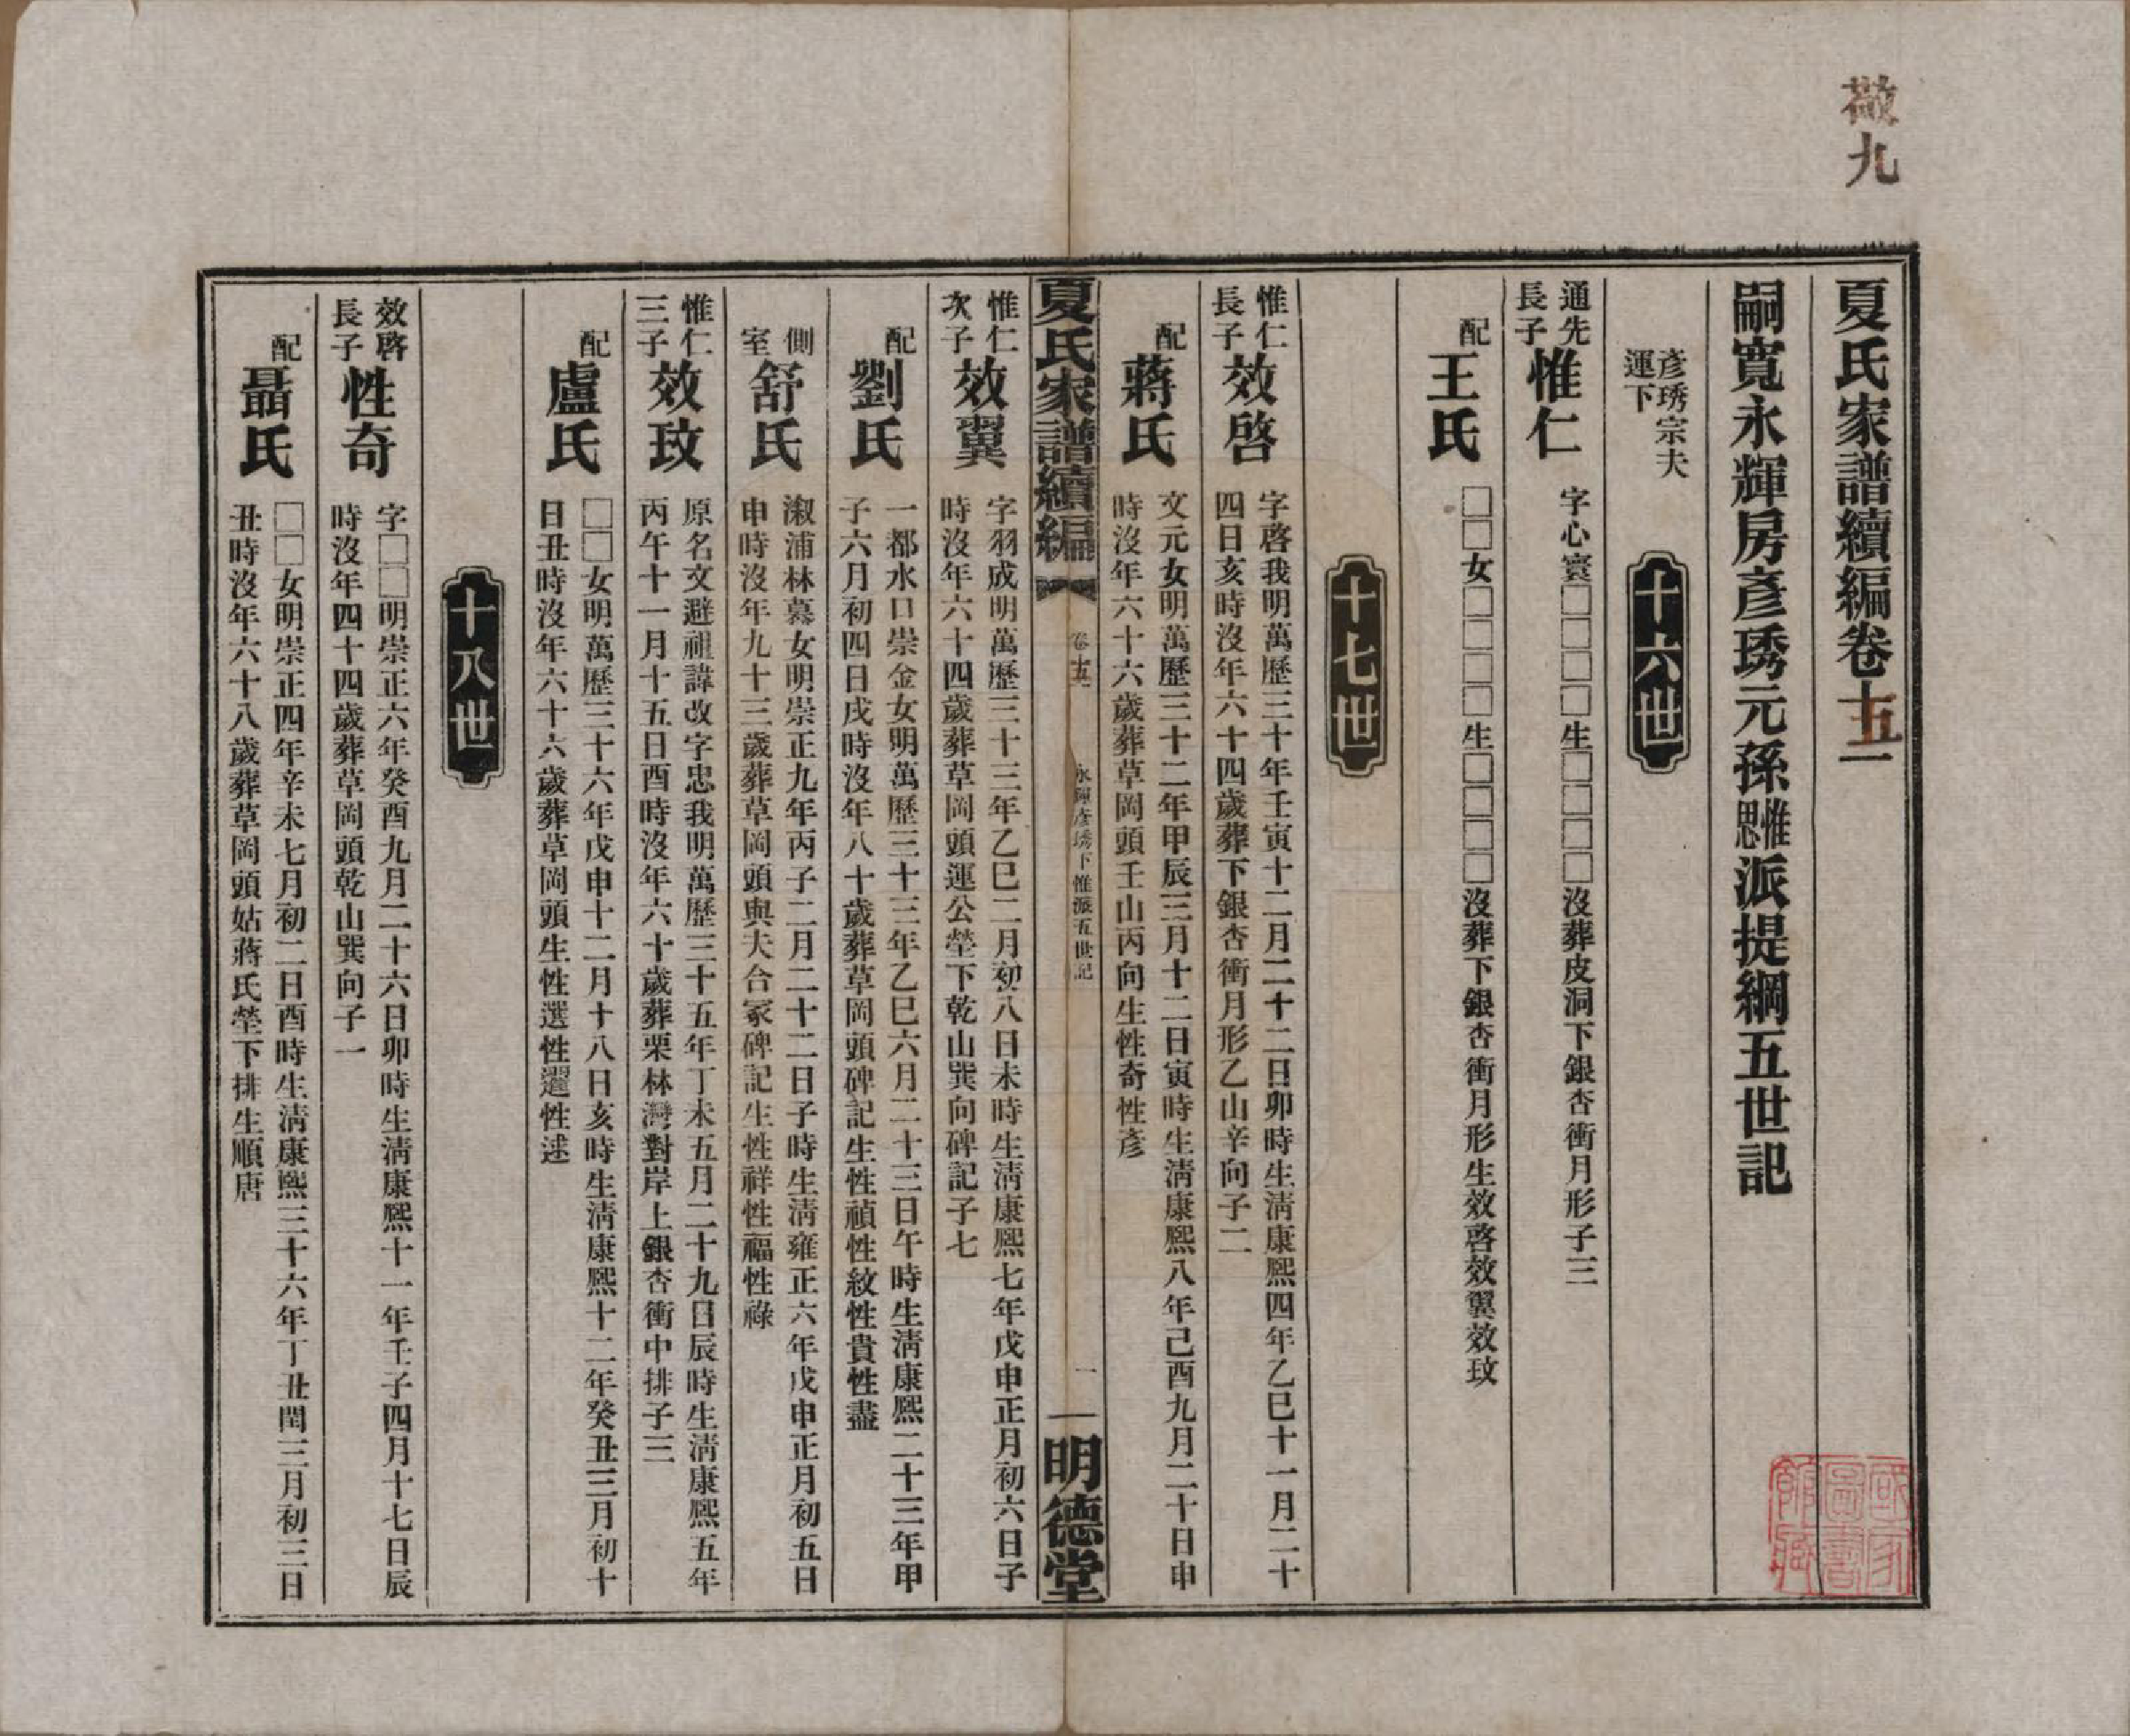 敬九
夏氏家譜續編卷十五一
嗣寬永輝房彥琇元孫惟思派提綱五世記
彥琇宗夫
運下
十六世
通先
長子
惟仁
字心寰□□□□生□□□□沒葬皮洞下銀杏衝月形子三
配
王氏
□□女□□□□生□□□□沒葬下銀杏衝月形生效啓效翼效玟
十七世
惟仁
長子
效啓
字啓我明萬歷三十年壬寅十二月二十二日卯時生淸康熙四年乙巳十一月二十
四日亥時沒年六十四歲葬下銀杏衝月形乙山辛向子二
配
蔣氏
文元女明萬歷三十二年甲辰三月十二日寅時生淸康熙八年己酉九月二十日申
時沒年六十六歲葬草岡頭壬山丙向生性奇性彥
夏氏家譜續編
卷十五
永輝彥琇下惟派五世記
一
明德堂
惟仁
次子
效翼
字羽成明萬歷三十三年乙巳二月初八日未時生淸康熙七年戊申正月初六日子
時沒年六十四歲葬草岡頭運公塋下乾山巽向碑記子七
配
劉氏
一都水口崇金女明萬歷三十三年乙巳六月二十三日午時生淸康熙二十三年甲
子六月初四日戌時沒年八十歲葬草岡頭碑記生性禎性紋性貴性盡
側
室
舒氏
溆浦林慕女明崇正九年丙子二月二十二日子時生淸雍正六年戊申正月初五日
申時沒年九十三歲葬草岡頭與夫合冢碑記生性祥性福性祿
惟仁
三子
效玟
原名文避祖諱改字忠我明萬歷三十五年丁未五月二十九日辰時生淸康熙五年
丙午十一月十五日酉時沒年六十歲葬栗林灣對岸上銀杏衝中排子三
配
盧氏
□□女明萬歷三十六年戊申十二月十八日亥時生淸康熙十二年癸丑三月初十
日丑時沒年六十六歲葬草岡頭生性選性遷性述
十八世
效啓
長子
性奇
字□□明崇正六年癸酉九月二十六日卯時生淸康熙十一年壬子四月十七日辰
時沒年四十四歲葬草岡頭乾山巽向子一
配
聶氏
□□女明崇正四年辛未七月初二日酉時生淸康熙三十六年丁丑閏三月初三日
丑時沒年六十八歲葬草岡頭姑蔣氏塋下排生順唐
國家圖書館藏